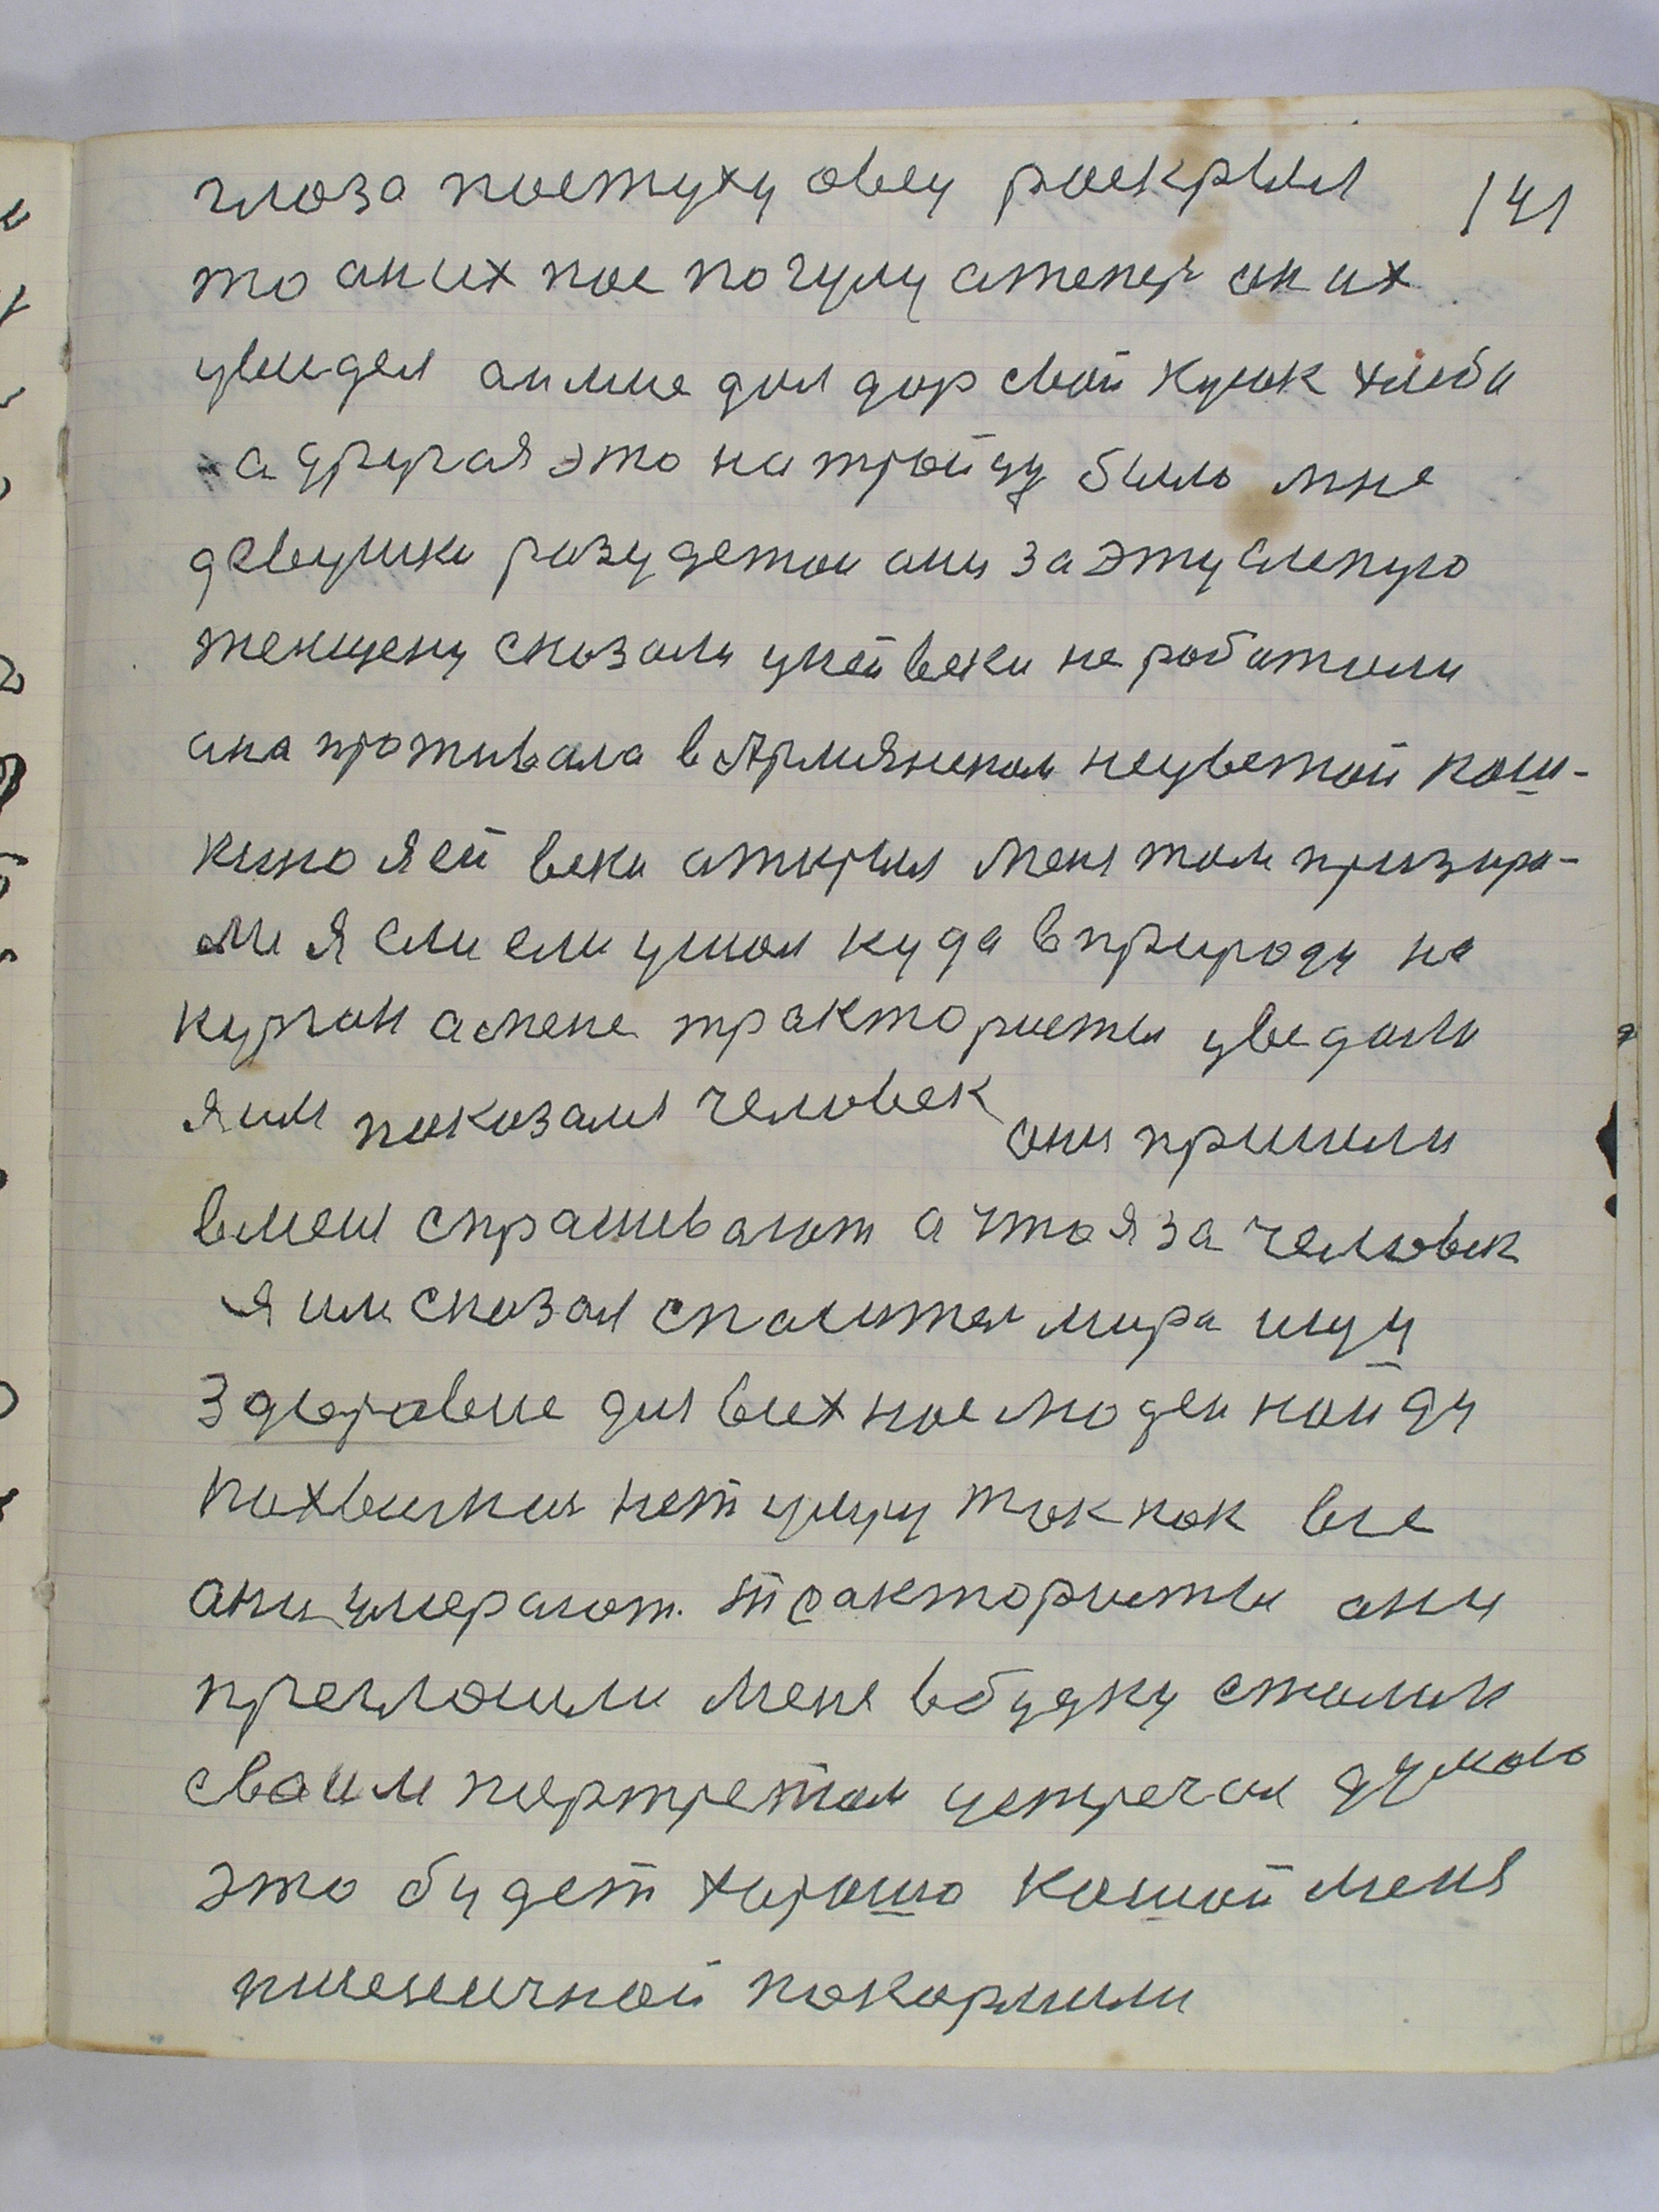 глоза постуху овец роскрыл 141
то он их пос по гулу а тепер он их
увидел он мне дал дар свой кусок хлеба
а другая это на тройцу было мне
девушки разудетои они за эту слепую
женщену сказали у ней веки не работали
она проживала в Армянском не цветной кош-
кино я ей веки открыл меня там призира-
ли я ели ели ушол куда в природу на
курган а мене трактористы уведали
я им показался человек они пришли
в меня спрашивают а что я за человек
я им сказал спаситель мира ищу
здъровие для всих нас людей найду
похвалюсь нет умру так как все
они умерают. трактористы они
прегласили меня в будку сталин
своим портретом устречал думаю
это будет хорошо кошой меня
пшеничной покормили